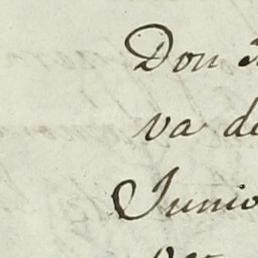 Don
va de
Junio